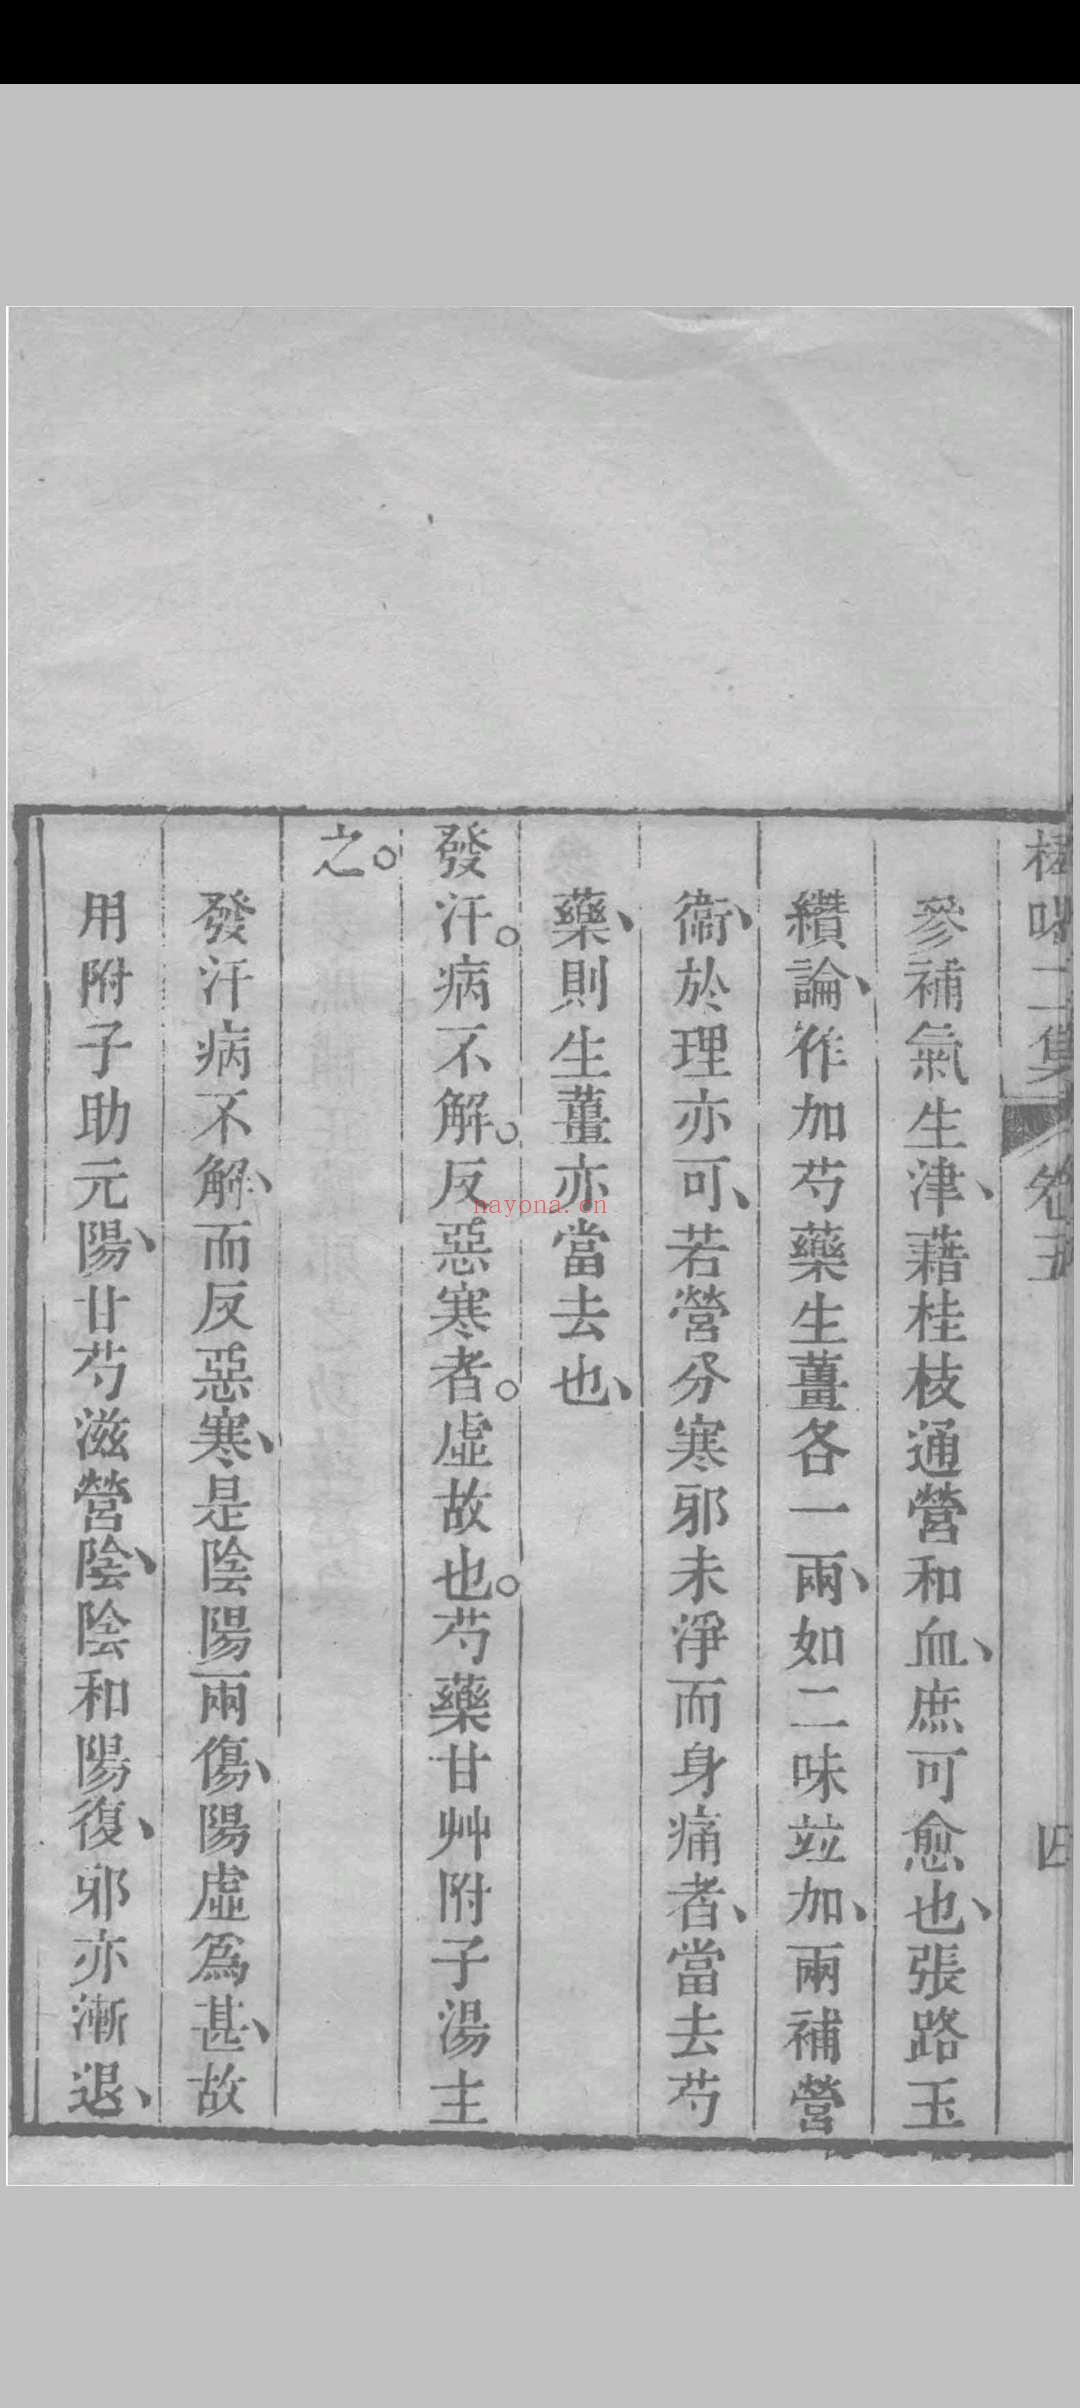 二集 卷五 四
參補氣生津、藉桂枝通營和血、庶可愈也、張路玉
纘論、作加芍藥生薑各一兩、如二味竝加、兩補營
衞、於理亦可、若營分寒邪未淨而身痛者、當去芍
藥、則生薑亦當去也、
發汗。病不解。反惡寒者。虛故也。芍藥甘艸附子湯主
之。
發汗病不解、而反惡寒、是陰陽兩傷、陽虛爲甚、故
用附子助元陽、甘芍滋營陰、陰和陽復、邪亦漸退、
nayona.cn